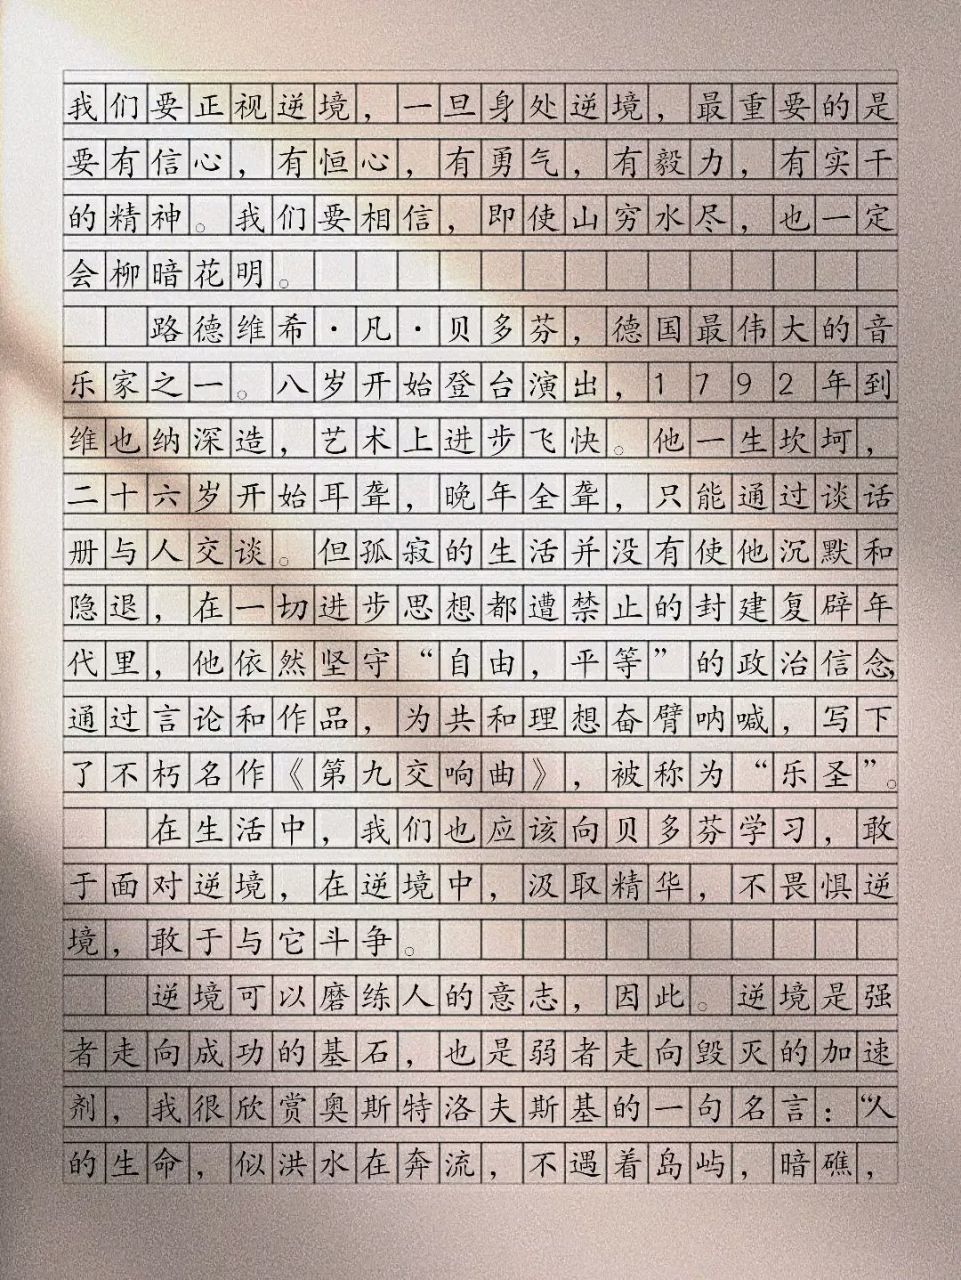 我们要正视逆境，一旦身处逆境，最重要的是
要有信心，有恒心，有勇气，有毅力，有实干
的精神。我们要相信，即使山穷水尽，也一定
会柳暗花明。
路德维希·凡·贝多芬，德国最伟大的音
乐家之一。八岁开始登台演出，1792年到
维也纳深造，艺术上进步飞快。他一生坎坷，
二十六岁开始耳聋，晚年全聋，只能通过谈话
册与人交谈。但孤寂的生活并没有使他沉默和
隐退，在一切进步思想都遭禁止的封建复辟年
代里，他依然坚守“自由，平等”的政治信念，
通过言论和作品，为共和理想奋臂呐喊，写下
了不朽名作《第九交响曲》，被称为“乐圣”。
在生活中，我们也应该向贝多芬学习，敢
于面对逆境，在逆境中，汲取精华，不畏惧逆
境，敢于与它斗争。
逆境可以磨练人的意志，因此。逆境是强
者走向成功的基石，也是弱者走向毁灭的加速
剂，我很欣赏奥斯特洛夫斯基的一句名言：“人
的生命，似洪水在奔流，不遇着岛屿，暗礁，